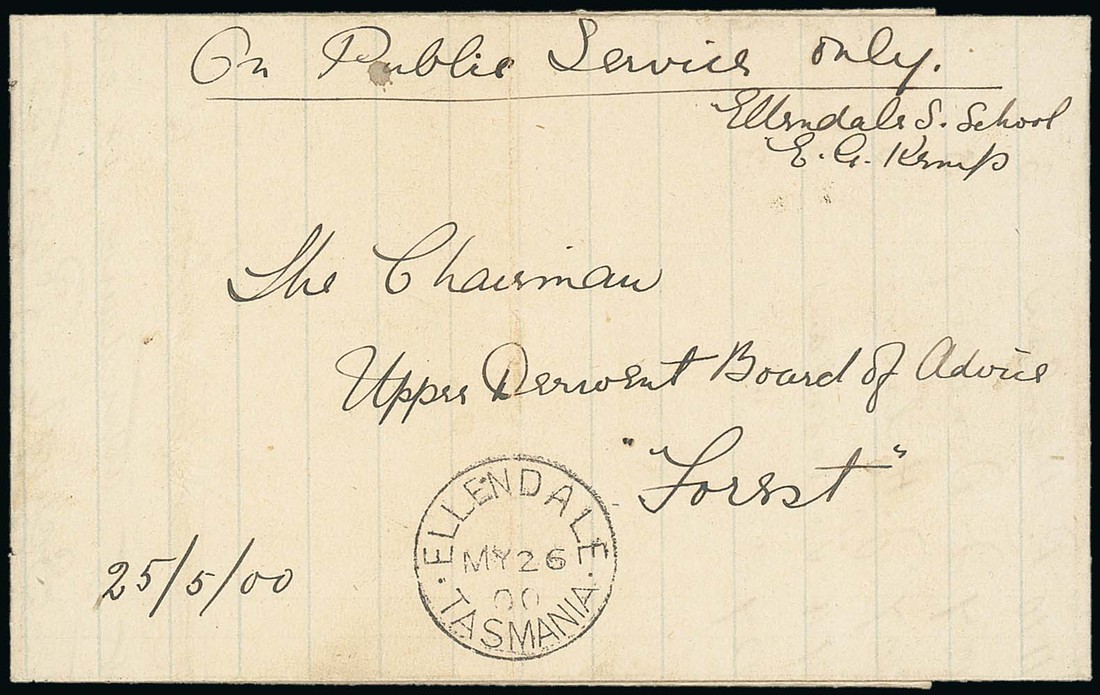 On Public Service only.
Ellendale S. School
E. G. Kemp
The Chairman
Upper Derwent Board of Advice
"Forest"
25/5/00
ELLENDALE
MY 26
00
TASMANIA